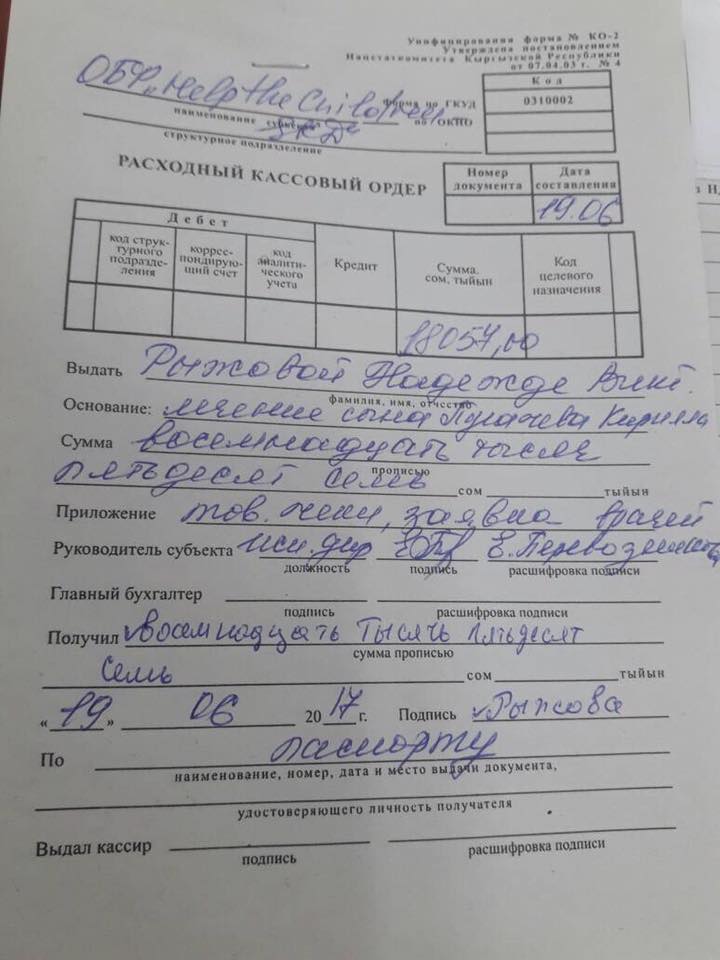 Унифицированная форма № КО-2
Утверждена постановлением
Нацстаткомитета Кыргызской Республики
от 07.04.03 г. № 4
Код
ОБФ „Help the Children
Форма по ГКУД 0310002
наименование субъекта по ОКПО
SKD"
структурное подразделение
РАСХОДНЫЙ КАССОВЫЙ ОРДЕР
Номер документа
Дата составления
19.06
Дебет
код струк-турного подразде-ления
коррес-пондирую-щий счет
код аналити-ческого учета
Кредит
Сумма. сом, тыйын
Код целевого назначения
18057,00
Выдать Рыжовой Надежде Викт.
фамилия, имя, отчество
Основание: лечение сына Пугачева Кирилла
Сумма восемнадцать тысяч
прописью
пятьдесят семь сом тыйын
Приложение тов. чеки, заявка врачей
Руководитель субъекта исп. дир Е. Перевозникова
должность подпись расшифровка подписи
Главный бухгалтер
подпись расшифровка подписи
Получил Восемнадцать тысячь пятьдесят
сумма прописью
семь сом тыйын
« 19 » 06 2017 г. Подпись Рыжова
По паспорту
наименование, номер, дата и место выдачи документа,
удостоверяющего личность получателя
Выдал кассир
подпись расшифровка подписи